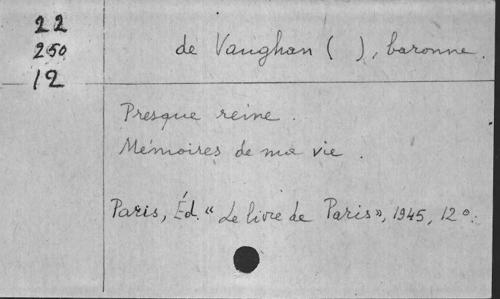 22
250
12
de Vaughan ( ), baronne.
Presque reine.
Mémoires de ma vie.
Paris, Éd. "Le livre de Paris", 1945, 12°.